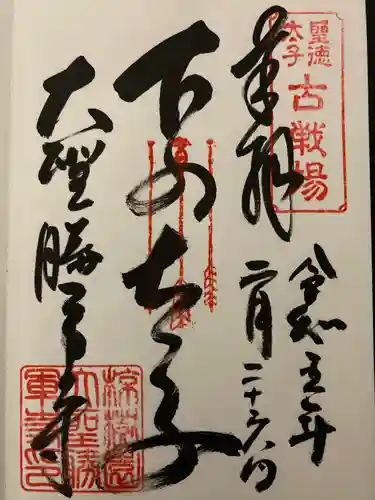 聖徳
太子
古戦場
奉拝
令和五年
二月二十六日
下の太子
大聖勝軍寺
椋樹
大聖勝
軍寺印